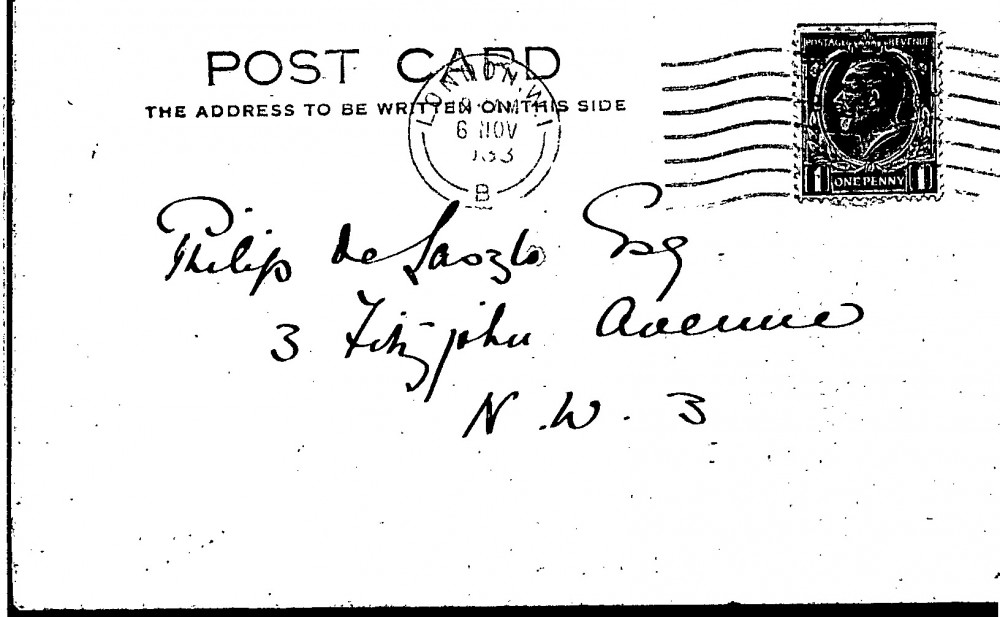 POST CARD
THE ADDRESS TO BE WRITTEN ON THIS SIDE
LONDON. W.1
6 NOV
1933
B
POSTAGE REVENUE
1 ONE PENNY 1
Philip de Laszlo Esq
3 Fitzjohn Avenue
N.W. 3